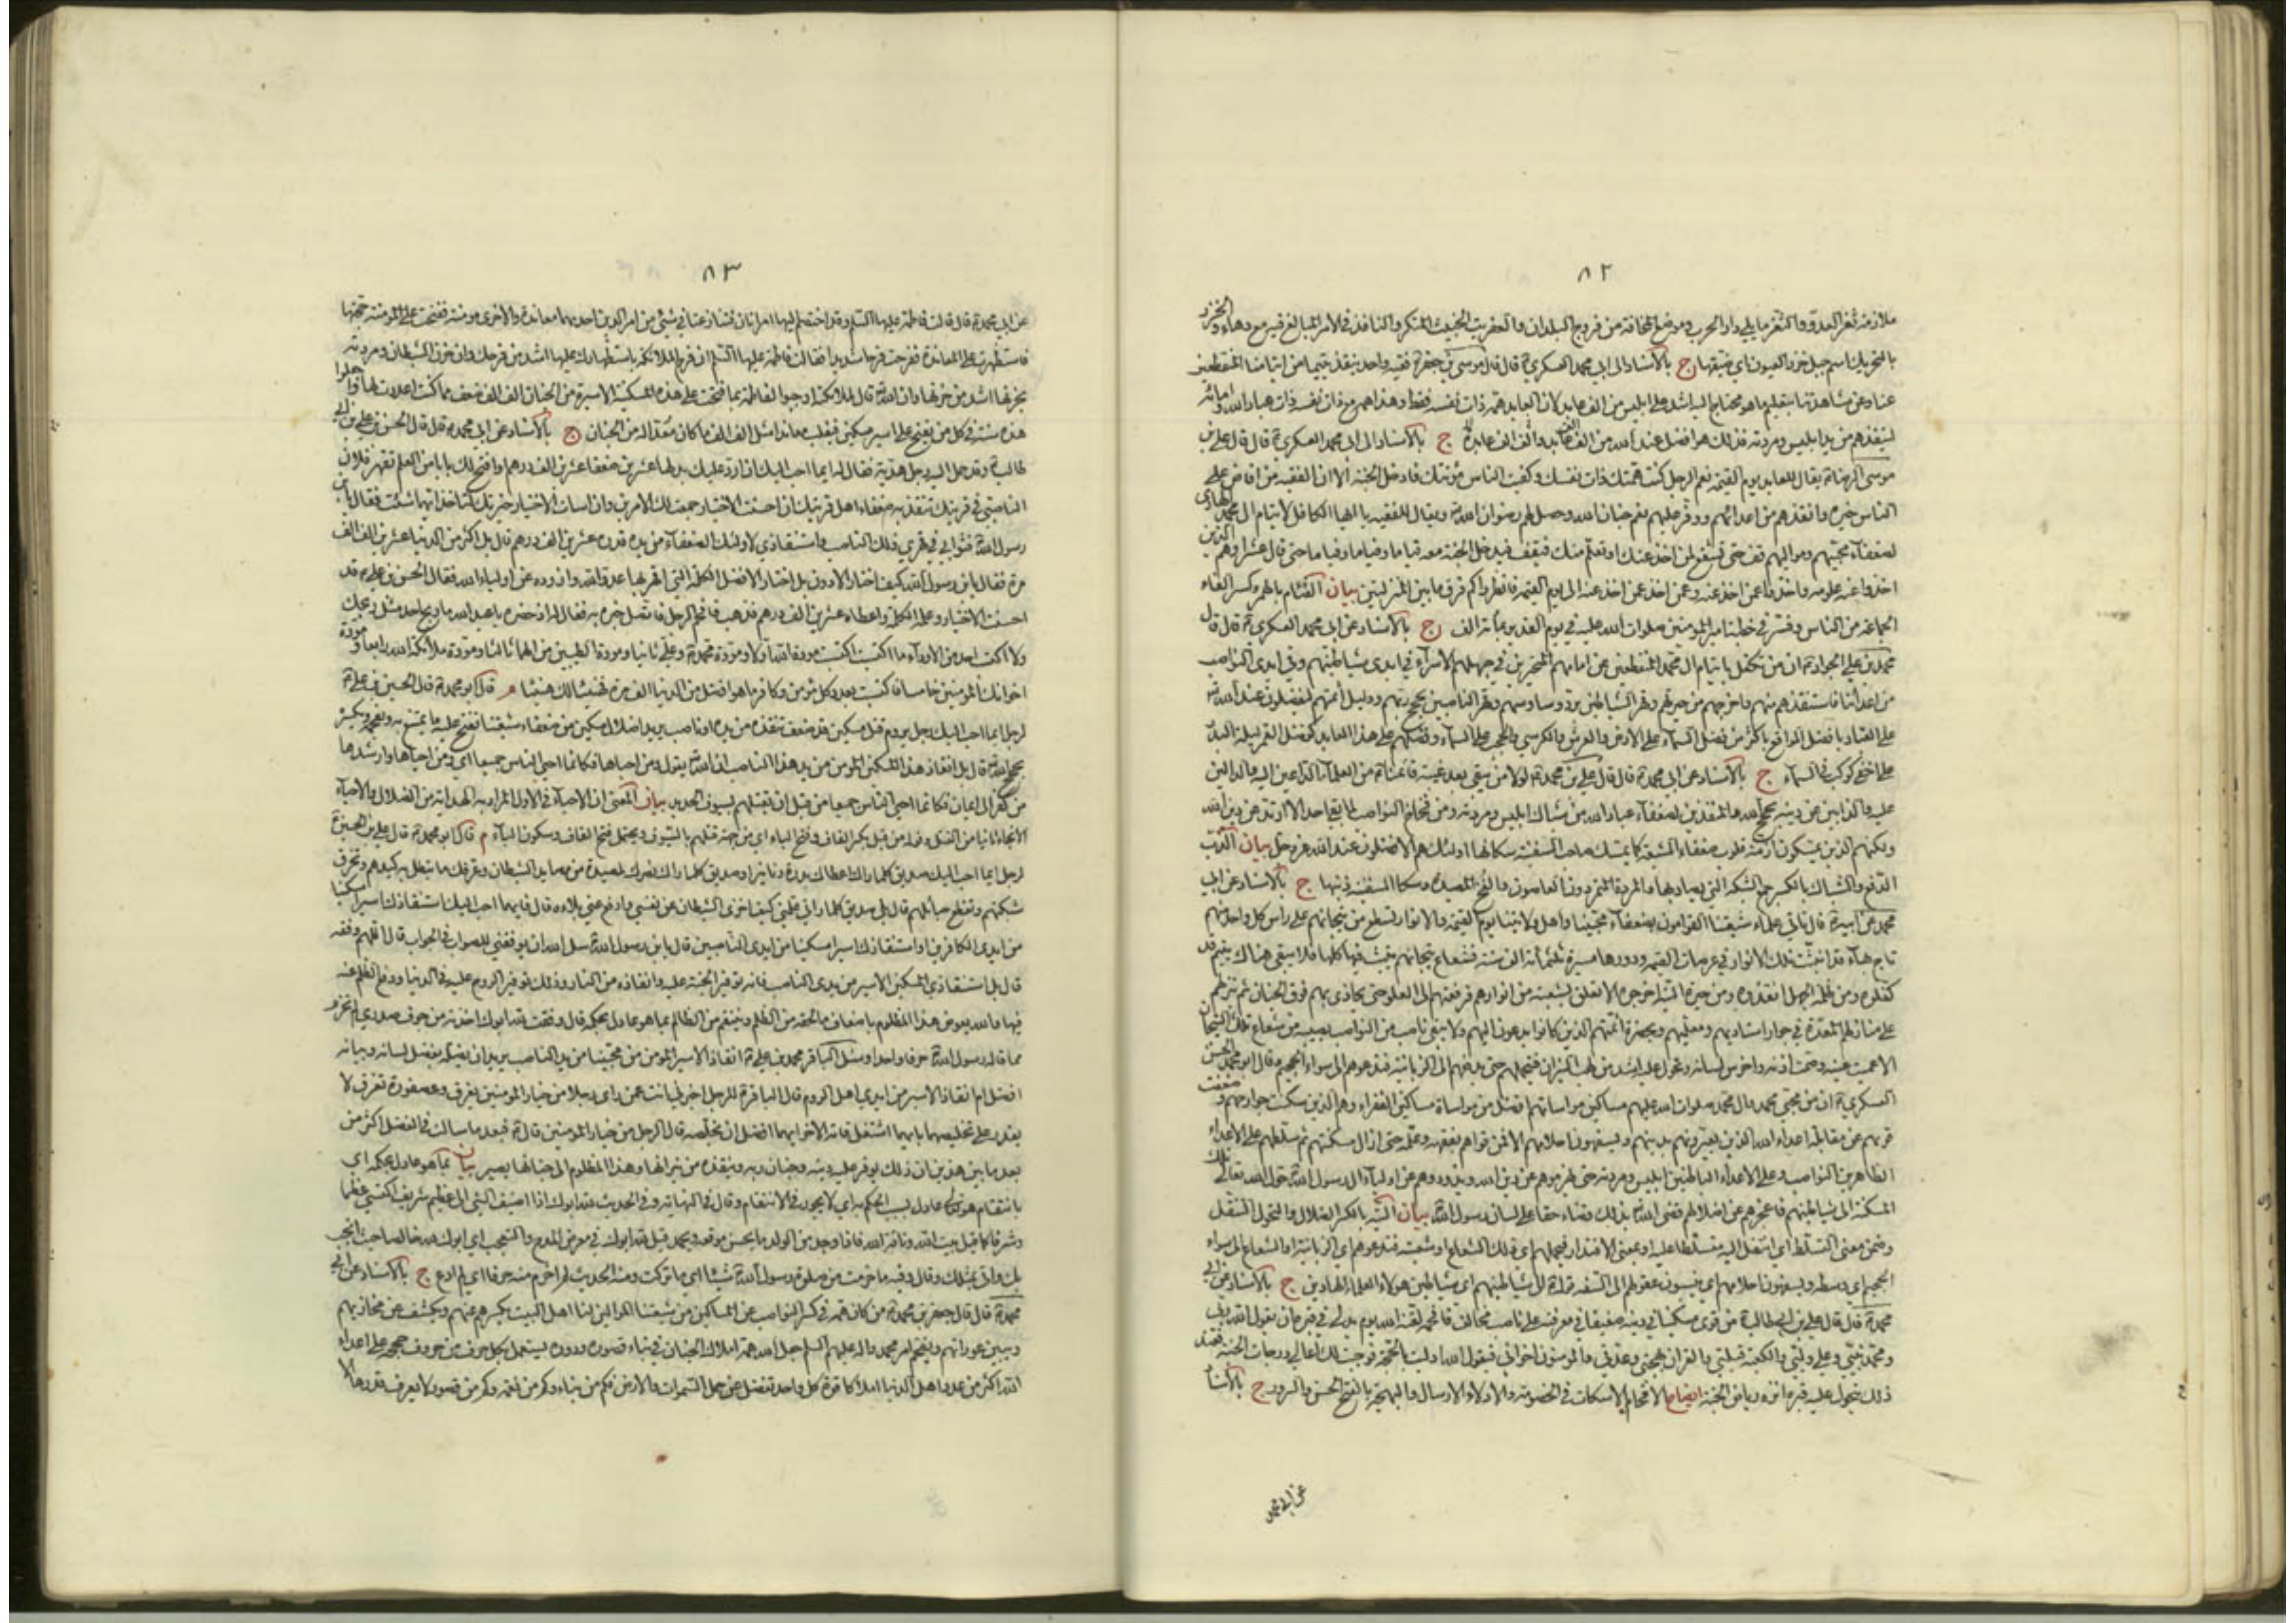 ٨٢
ملازمة ثغر العدو والثغر ما يلي دار الحرب وموضع المخافة من فروج البلدان والعفريت الخبيث المنكر والنافذ في الامر المبالغ فيه مع دهاء والخزر
بالتحريك اسم جبل خزر العيون اي ضيقها ج بالاسناد الى ابي محمد العسكري ع قال قال موسى بن جعفر ع فقيه واحد ينقذ يتيما من ايتامنا المنقطعين
عنا وعن مشاهدتنا بتعليم ما هو محتاج اليه اشد على ابليس من الف عابد لان العابد همه ذات نفسه فقط وهذا همه مع ذات نفسه ذات عباد الله وامائه
لينقذهم من يد ابليس ومردته فذلك هو افضل عند الله من الف عابد والف الف عابدة ج بالاسناد الى ابي محمد العسكري ع قال قال علي بن
موسى الرضا ع يقال للعابد يوم القيمة نعم الرجل كنت همتك ذات نفسك وكفيت الناس مؤنتك فادخل الجنة الا ان الفقيه من افاض على
الناس خيره وانقذهم من اعدائهم ووفر عليهم نعم جنان الله وحصل لهم رضوان الله ويقال للفقيه يا ايها الكافل لايتام ال محمد الهادي
لضعفاء محبيهم ومواليهم قف حتى تشفع لمن اخذ عنك او تعلم منك فيقف فيدخل الجنة معه فئاما وفئاما وفئاما حتى قال عشرا وهم الذين
اخذوا عنه علومه واخذوا عمن اخذ عنه وعمن اخذ عمن اخذ عنه الى يوم القيمة فانظروا كم فرق ما بين المنزلتين بيان الفئام بالهمز وكسر الفاء
الجماعة من الناس وفسر في خطبة امير المؤمنين صلوات الله عليه في يوم الغدير بمائة الف ج بالاسناد عن ابي محمد العسكري ع قال قال
محمد بن علي الجواد ع ان من تكفل بايتام ال محمد المنقطعين عن امامهم المتحيرين في جهلهم الاسراء في ايدي شياطينهم وفي ايدي النواصب
من اعدائنا فاستنقذهم منهم واخرجهم من حيرتهم وقهر الشياطين برد وساوسهم وقهر الناصبين بحجج ربهم ودليل ائمتهم ليفضلون عند الله
على العباد بافضل المواقع باكثر من فضل السماء على الارض والعرش والكرسي والحجب على السماء وفضلهم على هذا العابد كفضل القمر ليلة البدر
على اخفى كوكب في السماء ج بالاسناد عن ابي محمد ع قال قال علي بن محمد ع لولا من يبقى بعد غيبة قائمنا ع من العلماء الداعين اليه والدالين
عليه والذابين عن دينه بحجج الله والمنقذين لضعفاء عباد الله من شباك ابليس ومردته ومن فخاخ النواصب لما بقي احد الا ارتد عن دين الله
ولكنهم الذين يمسكون ازمة قلوب ضعفاء الشيعة كما يمسك صاحب السفينة سكانها اولئك هم الافضلون عند الله عز وجل بيان الذب
الدفع والشباك بالكسر جمع الشبكة التي يصاد بها والمردة المتمردون العاصون والفخ المصيدة وسكان السفينة ذنبها ج بالاسناد عن ابي
محمد عن ابيه ع قال تأتي علماء شيعتنا القوامون بضعفاء محبينا واهل ولايتنا يوم القيمة والانوار تسطع من تيجانهم على رأس كل واحد منهم
تاج بهاء قد انبثت تلك الانوار في عرصات القيمة ودورها مسيرة ثلثمائة الف سنة فشعاع تيجانهم ينبث فيها كلها فلا يبقى هناك يتيم قد
كفلوه ومن ظلمة الجهل انقذوه ومن حيرة التيه اخرجوه الا تعلق بشعبة من انوارهم فرفعتهم الى العلو حتى يحاذي بهم فوق الجنان ثم تنزلهم
على منازلهم المعدة في جوار استاديهم ومعلميهم وبحضرة ائمتهم الذين كانوا يدعون اليهم ولا يبقى ناصب من النواصب يصيبه من شعاع تلك التيجان
الا عميت عينه وصمت اذنه واخرس لسانه وتحول عليه اشد من لهب النيران فيحملهم حتى يدفعهم الى الزبانية فتدعوهم الى سواء الجحيم وقال ابو محمد الحسن
العسكري ع ان من محبي محمد وال محمد صلوات الله عليهم مساكين مواساتهم افضل من مواساة مساكين الفقراء وهم الذين سكنت جوارحهم وضعفت
قوتهم عن مقابلة اعداء الله الذين يعيرونهم بدينهم ويسفهون احلامهم الا فمن قواهم بفقهه وعلمه حتى ازال مسكنتهم ثم سلطهم على الاعداء
الظاهرين النواصب وعلى الاعداء الباطنين ابليس ومردته حتى يهزموهم عن دين الله ويذودوهم عن اولياء ال رسول الله حول الله تعالى تلك
المسكنة الى شياطينهم فاعجزهم عن اضلالهم قضى الله بذلك قضاء حقا على لسان رسول الله بيان التيه بالكسر الضلال والتحول التنقل
وضمن معنى التسلط اي انتقل اليه متسلطا عليه او بمعنى الاقتدار فيحملهم اي ذلك الشعاع او شعبته فتدعوهم اي الزبانية او الشعاع الى سواء
الجحيم اي وسطه ويسفهون احلامهم اي ينسبون عقولهم الى السفه قوله الى شياطينهم اي شياطين هؤلاء العلماء الهادين ج بالاسناد عن ابي
محمد ع قال قال علي بن ابي طالب ع من قوى مسكينا في دينه ضعيفا في معرفته على ناصب مخالف فافحمه لقنه الله يوم يدلى في قبره ان يقول الله ربي
ومحمد نبيي وعلي وليي والكعبة قبلتي والقران بهجتي وعدتي والمؤمنون اخواني فيقول الله ادليت بالحجة فوجبت لك اعالي درجات الجنة فعند
ذلك يتحول عليه قبره انزه رياض الجنة ايضاح الافحام الاسكات في الخصومة والادلاء الارسال والبهجة بالفتح الحسن والسرور ج بالاسناد
عن ابي محمد
٨٣
عن ابي محمد ع قال قالت فاطمة عليها السلام وقد اختصم اليها امرأتان فتنازعتا في شيء من امر الدين احديهما معاندة والاخرى مؤمنة ففتحت على المؤمنة حجتها
فاستظهرت على المعاندة ففرحت فرحا شديدا فقالت فاطمة عليها السلام ان فرح الملائكة باستظهارك عليها اشد من فرحك وان حزن الشيطان ومردته
بحزنها اشد من حزنها وان الله قال لملائكته اوجبوا لفاطمة بما فتحت على هذه المسكينة الاسيرة من الجنان الف الف ضعف مما كنت اعددت لها واجعلوا
هذه سنة في كل من يفتح على اسير مسكين فيغلب معاندا مثل الف الف ما كان معدا له من الجنان ج بالاسناد عن ابي محمد ع قال قال الحسن بن علي بن ابي
طالب ع وقد حمل اليه رجل هدية فقال له ايما احب اليك ان ارد عليك بدلها عشرين ضعفا عشرين الف درهم او افتح لك بابا من العلم تقهر فلان
الناصبي في قريتك تنقذ به ضعفاء اهل قريتك ان احسنت الاختيار جمعت لك الامرين وان اسأت الاختيار خيرتك لتأخذ ايهما شئت فقال يابن
رسول الله فثوابي في قهري ذلك الناصب واستنقاذي لاولئك الضعفاء من يده قدره عشرين الف درهم قال بل اكثر من الدنيا عشرين الف الف
مرة فقال يابن رسول الله فكيف اختار الادون بل اختار الافضل الكلمة التي اقهر بها عدو الله واذوده عن اولياء الله فقال الحسن بن علي ع قد
احسنت الاختيار وعلمه الكلمة واعطاه عشرين الف درهم فذهب فافحم الرجل فاتصل خبره به فقال له اذ حضره يا عبد الله ما ربح احد مثل ربحك
ولا اكتسب احد من الاوداء ما اكتسبت اكتسبت مودة الله اولا ومودة محمد وعلي ثانيا ومودة الطيبين من الهما ثالثا ومودة ملائكة الله رابعا ومودة
اخوانك المؤمنين خامسا فاكتسبت بعدد كل مؤمن وكافر ما هو افضل من الدنيا الف مرة فهنيئا لك هنيئا م قال ابو محمد ع قال الحسين بن علي ع
لرجل ايما احب اليك رجل يروم قتل مسكين قد ضعف تنقذه من يده او ناصب يريد اضلال مسكين من ضعفاء شيعتنا تفتح عليه ما يمتنع به ويفحمه ويكسره
بحجج الله قال بل انقاذ هذا المسكين المؤمن من يد هذا الناصب ان الله يقول ومن احياها فكانما احيى الناس جميعا اي ومن احياها وارشدها
من كفر الى ايمان فكانما احيى الناس جميعا من قبل ان يقتلهم بسيوف الحديد بيان المعنى ان الاحياء في الاول المراد به الهداية من الضلال والاحياء
الانجاء ثانيا من القتل وقوله من قبل بكسر القاف وفتح الباء اي من جهة قتلهم بالسيوف ويحتمل فتح القاف وسكون الباء م قال ابو محمد ع قال علي بن الحسين ع
لرجل ايما احب اليك صديق كلما راك اعطاك بدرة دنانير او صديق كلما راك نصرك لمصيدة من مصايد الشيطان وعرفك ما تبطل به كيدهم وتخرق
شبكتهم وتقطع حبائلهم قال بل صديق كلما راني علمني كيف اخزي الشيطان عن نفسي وادفع عني بلاءه قال فايهما احب اليك استنقاذك اسيرا مسكينا
من ايدي الكافرين او استنقاذك اسيرا مسكينا من ايدي الناصبين قال يابن رسول الله سل الله ان يوفقني للصواب في الجواب قال اللهم وفقه
قال بل استنقاذي المسكين الاسير من يدي الناصب فانه توفير الجنة عليه وانقاذه من النار وذلك توفير الروح عليه في الدنيا ودفع الظلم عنه
فيها والله يعوض هذا المظلوم باضعاف ما لحقه من الظلم وينتقم من الظالم بما هو عادل بحكمه قال وفقت لله ابوك اخذته من جوف صدري لم تخرم
مما قاله رسول الله حرفا واحدا وسئل الباقر محمد بن علي ع انقاذ الاسير المؤمن من محبينا من يد الناصب يريد ان يضله بفضل لسانه وبيانه
افضل ام انقاذ الاسير من ايدي اهل الروم قال الباقر ع للرجل اخبرني انت عمن راى رجلا من خيار المؤمنين يغرق وعصفورة تغرق لا
يقدر على تخليصهما بايهما اشتغل فاته الاخر ايهما افضل ان يخلصه قال الرجل من خيار المؤمنين قال ع فبعد ما سألت في الفضل اكثر من
بعد ما بين هذين ان ذلك يوفر عليه دينه وجنان ربه وينقذه من نيرانها وهذا المظلوم الى جنانها يصير بيان بما هو عادل بحكمه اي
بانتقام هو تعالى عادل بسبب الحكم به اي لا يجور في الانتقام وقال في النهاية وفي الحديث لله ابوك اذا اضيف الشيء الى عظيم شريف اكتسى عظما
وشرفا كما قيل بيت الله وناقة الله فاذا وجد من الولد ما يحسن موقعه ويحمد قيل لله ابوك في معرض المدح والتعجب اي ابوك لله خالصا حيث انجب
بك واتى بمثلك وقال وفيه ما خرمت من صلوة رسول الله شيئا اي ما تركت ومنه الحديث لم اخرم منه حرفا اي لم ادع ج بالاسناد عن ابي
محمد ع قال قال جعفر بن محمد ع من كان همه في كسر النواصب عن المساكين من شيعتنا الموالين لنا اهل البيت يكسرهم عنهم ويكشف عن مخازيهم
ويبين عوراتهم ويفخم امر محمد واله عليهم السلم جعل الله همة املاك الجنان في بناء قصوره ودوره يستعمل بكل حرف من حروف حججه على اعداء
الله اكثر من عدد اهل الدنيا املاكا قوة كل واحد تفضل عن حمل السموات والارض فكم من بناء وكم من نعمة وكم من قصور لا يعرف قدرها الا